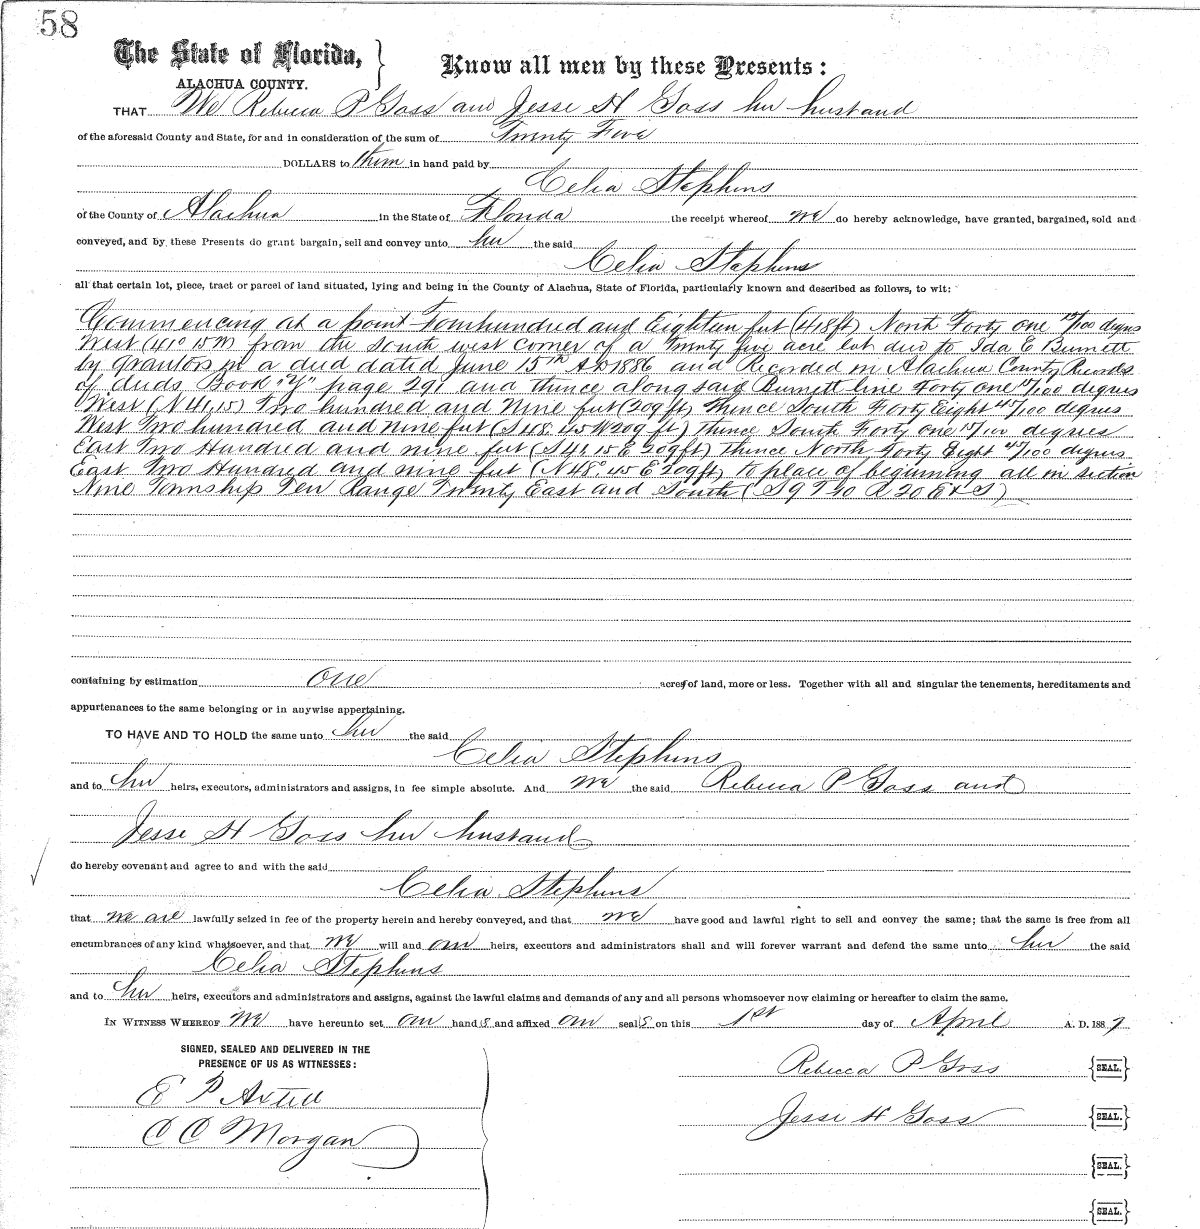 58
The State of Florida, }
ALACHUA COUNTY.
Know all men by these Presents:
THAT We Rebecca P Goss and Jesse H Goss her husband
of the aforesaid County and State, for and in consideration of the sum of Twenty Five
DOLLARS to them in hand paid by
Celia Stephins
of the County of Alachua in the State of Florida the receipt whereof we do hereby acknowledge, have granted, bargained, sold and
conveyed, and by these Presents do grant bargain, sell and convey unto her the said
Celia Stephins
all that certain lot, piece, tract or parcel of land situated, lying and being in the County of Alachua, State of Florida, particularly known and described as follows, to wit:
Commencing at a point Fourhundred and Eighteen feet (418ft) North Forty one 15/100 degrees
West (41° 15 from the south west corner of a Twenty five acre lot deed to Ida E Burnett
by grantors in a deed dated June 15th AD1886 and Recorded in Alachua County Records
of deeds Book "Y" page 291 and thence along said Burnett line Forty one 15/100 degrees
West (N 41,15) Two hundred and Nine feet (209 ft) Thence South Forty Eight 45/100 degrees
West Two hundred and nine feet (S 48. 45 W 209 ft) thence South Forty one 15/100 degrees
East Two Hundred and nine feet (S 41, 15 E 209ft) thence North Forty Eight 45/100 degrees
East Two Hundred and nine feet (N 48° 45 E 209ft) to place of beginning all in section
Nine Township Ten Range Twenty East and South (S 9 T 10 R 20 E & S)
containing by estimation one acres of land, more or less. Together with all and singular the tenements, hereditaments and
appurtenances to the same belonging or in anywise appertaining.
TO HAVE AND TO HOLD the same unto her the said
Celia Stephins
and to her heirs, executors, administrators and assigns, in fee simple absolute. And we the said Rebecca P Goss and
Jesse H Goss her husband
do hereby covenant and agree to and with the said
Celia Stephins
that we are lawfully seized in fee of the property herein and hereby conveyed, and that we have good and lawful right to sell and convey the same; that the same is free from all
encumbrances of any kind whatsoever, and that we will and our heirs, executors and administrators shall and will forever warrant and defend the same unto her the said
Celia Stephins
and to her heirs, executors and administrators and assigns, against the lawful claims and demands of any and all persons whomsoever now claiming or hereafter to claim the same.
IN WITNESS WHEREOF We have hereunto set our hands and affixed our seals on this 1st day of April A. D. 1887
SIGNED, SEALED AND DELIVERED IN THE
PRESENCE OF US AS WITNESSES:
E P Axtell
C C Morgan
Rebecca P Goss {SEAL.}
Jesse H Goss {SEAL.}
{SEAL.}
{SEAL.}